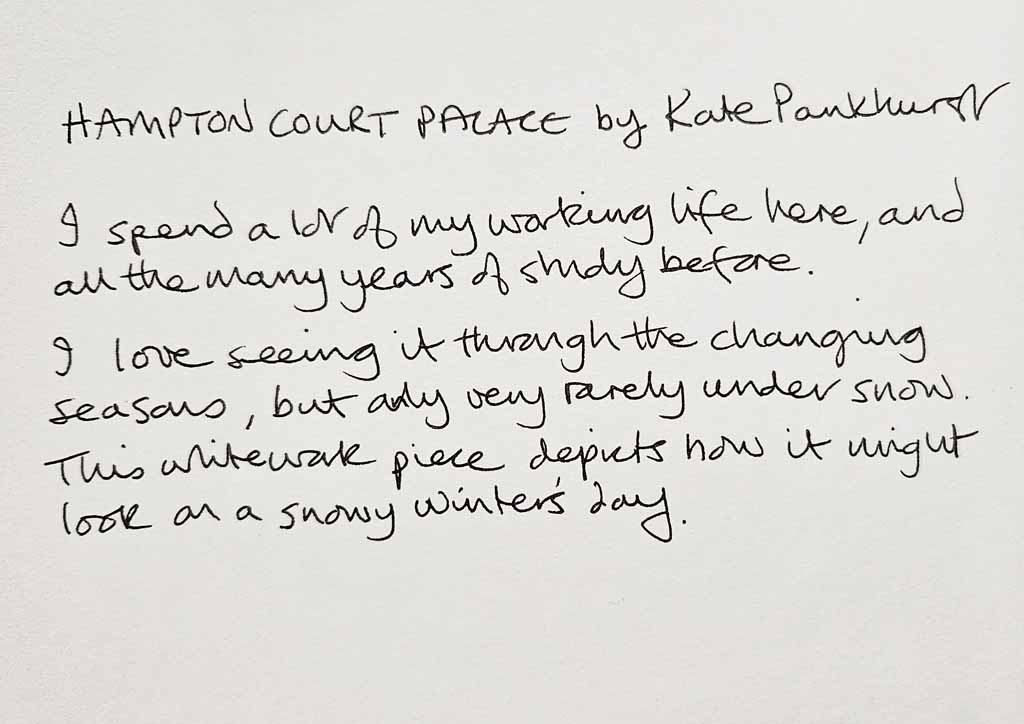 HAMPTON COURT PALACE by Kate Pankhurst
I spend a lot of my working life here, and
all the many years of study before.
I love seeing it through the changing
seasons, but only very rarely under snow.
This whitework piece depicts how it might
look on a snowy winter's day.